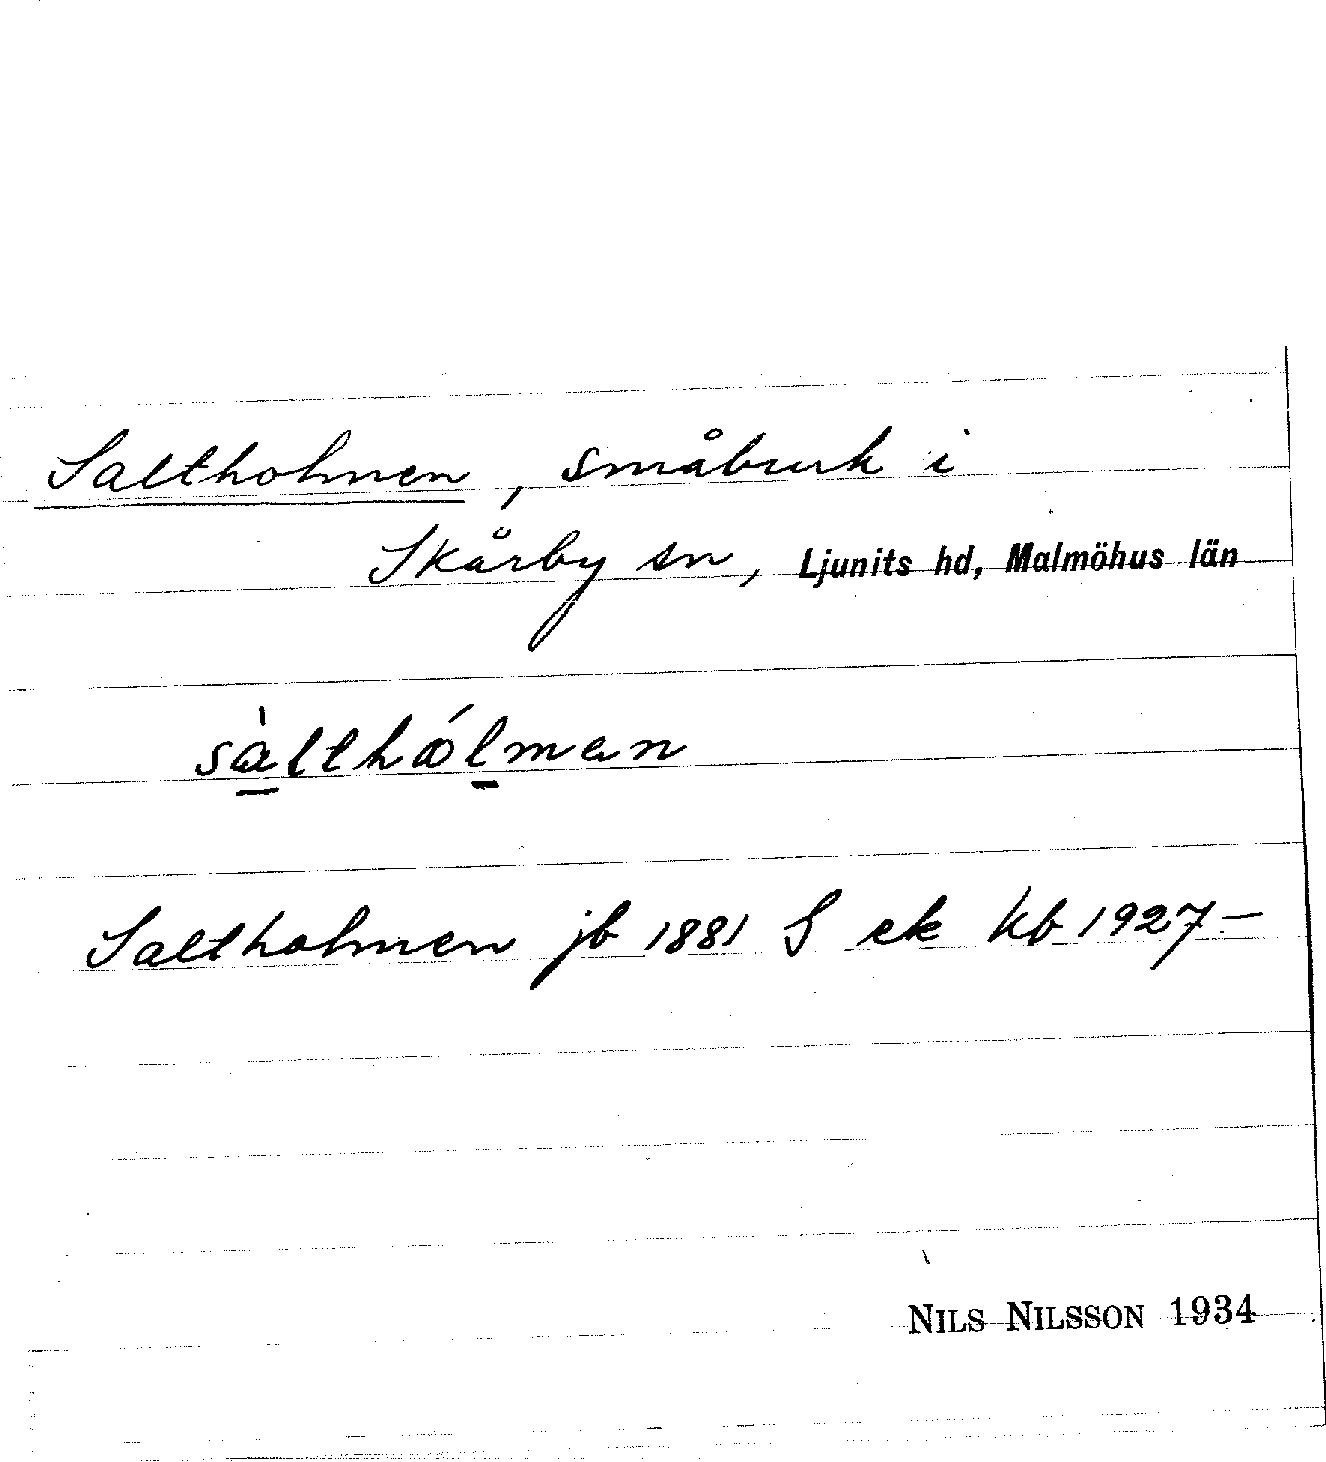 Saltholmen, småbruk i
Skårby sn, Ljunits hd, Malmöhus län
sàlthólman
Saltholmen jb 1881 S ek kb 1927–
NILS NILSSON 1934